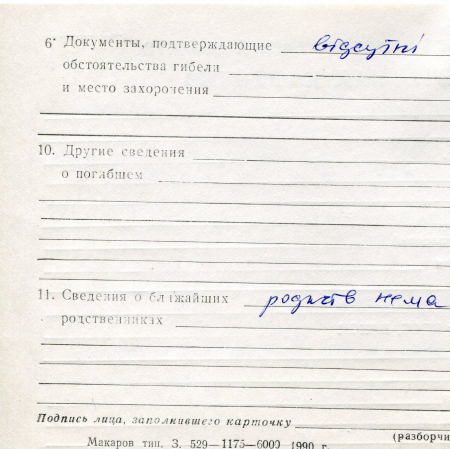 6· Документы, подтверждающие відсутні
обстоятельства гибели
и место захоронения
10. Другие сведения
о погибшем
11. Сведения о ближайших родичів нема
родственниках
Подпись лица, заполнившего карточку
(разборчи
Макаров тип. З. 529—1175—6000 1990 г.